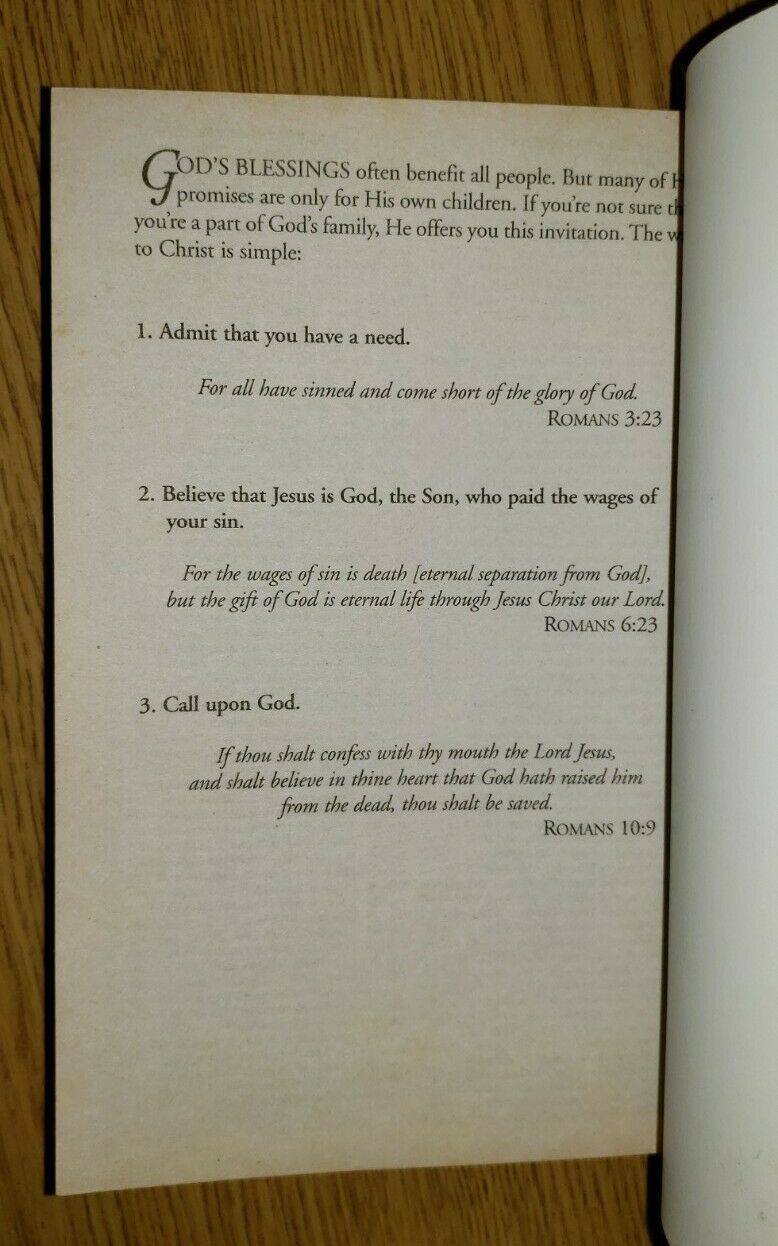 GOD'S BLESSINGS often benefit all people. But many of
promises are only for His own children. If you're not sure
you're a part of God's family, He offers you this invitation. The
to Christ is simple:
1. Admit that you have a need.
For all have sinned and come short of the glory of God.
ROMANS 3:23
2. Believe that Jesus is God, the Son, who paid the wages of
your sin.
For the wages of sin is death [eternal separation from God],
but the gift of God is eternal life through Jesus Christ our Lord.
ROMANS 6:23
3. Call upon God.
If thou shalt confess with thy mouth the Lord Jesus,
and shalt believe in thine heart that God hath raised him
from the dead, thou shalt be saved.
ROMANS 10:9